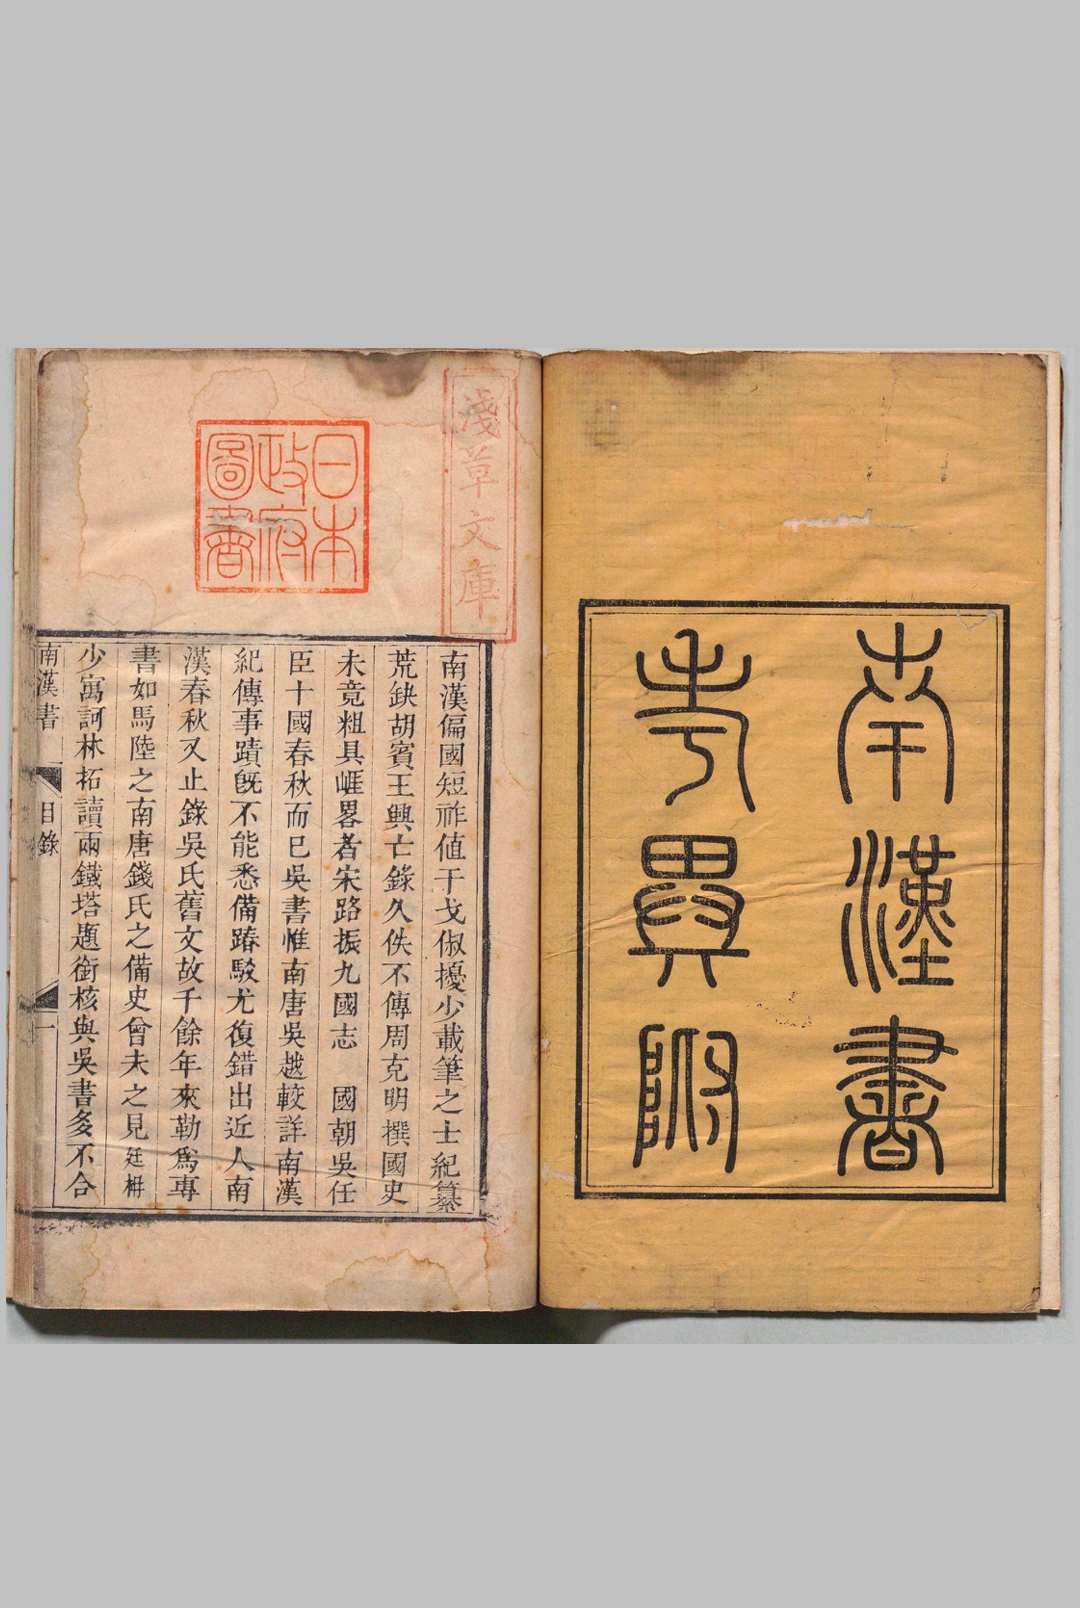 南漢書
考異附
淺草文庫
日本
政府
圖書
南漢偏國短祚值干戈俶擾少載筆之士紀纂
荒缺胡賓王興亡錄久佚不傳周克明撰國史
未竟粗具崕畧者宋路振九國志　國朝吳任
臣十國春秋而已吳書惟南唐吳越較詳南漢
紀傳事蹟旣不能悉備踳駁尤復錯出近人南
漢春秋又止錄吳氏舊文故千餘年來勒爲專
書如馬陸之南唐錢氏之備史曾未之見廷枏
少寓訶林拓讀兩鐵塔題銜核與吳書多不合
南漢書　目錄　一